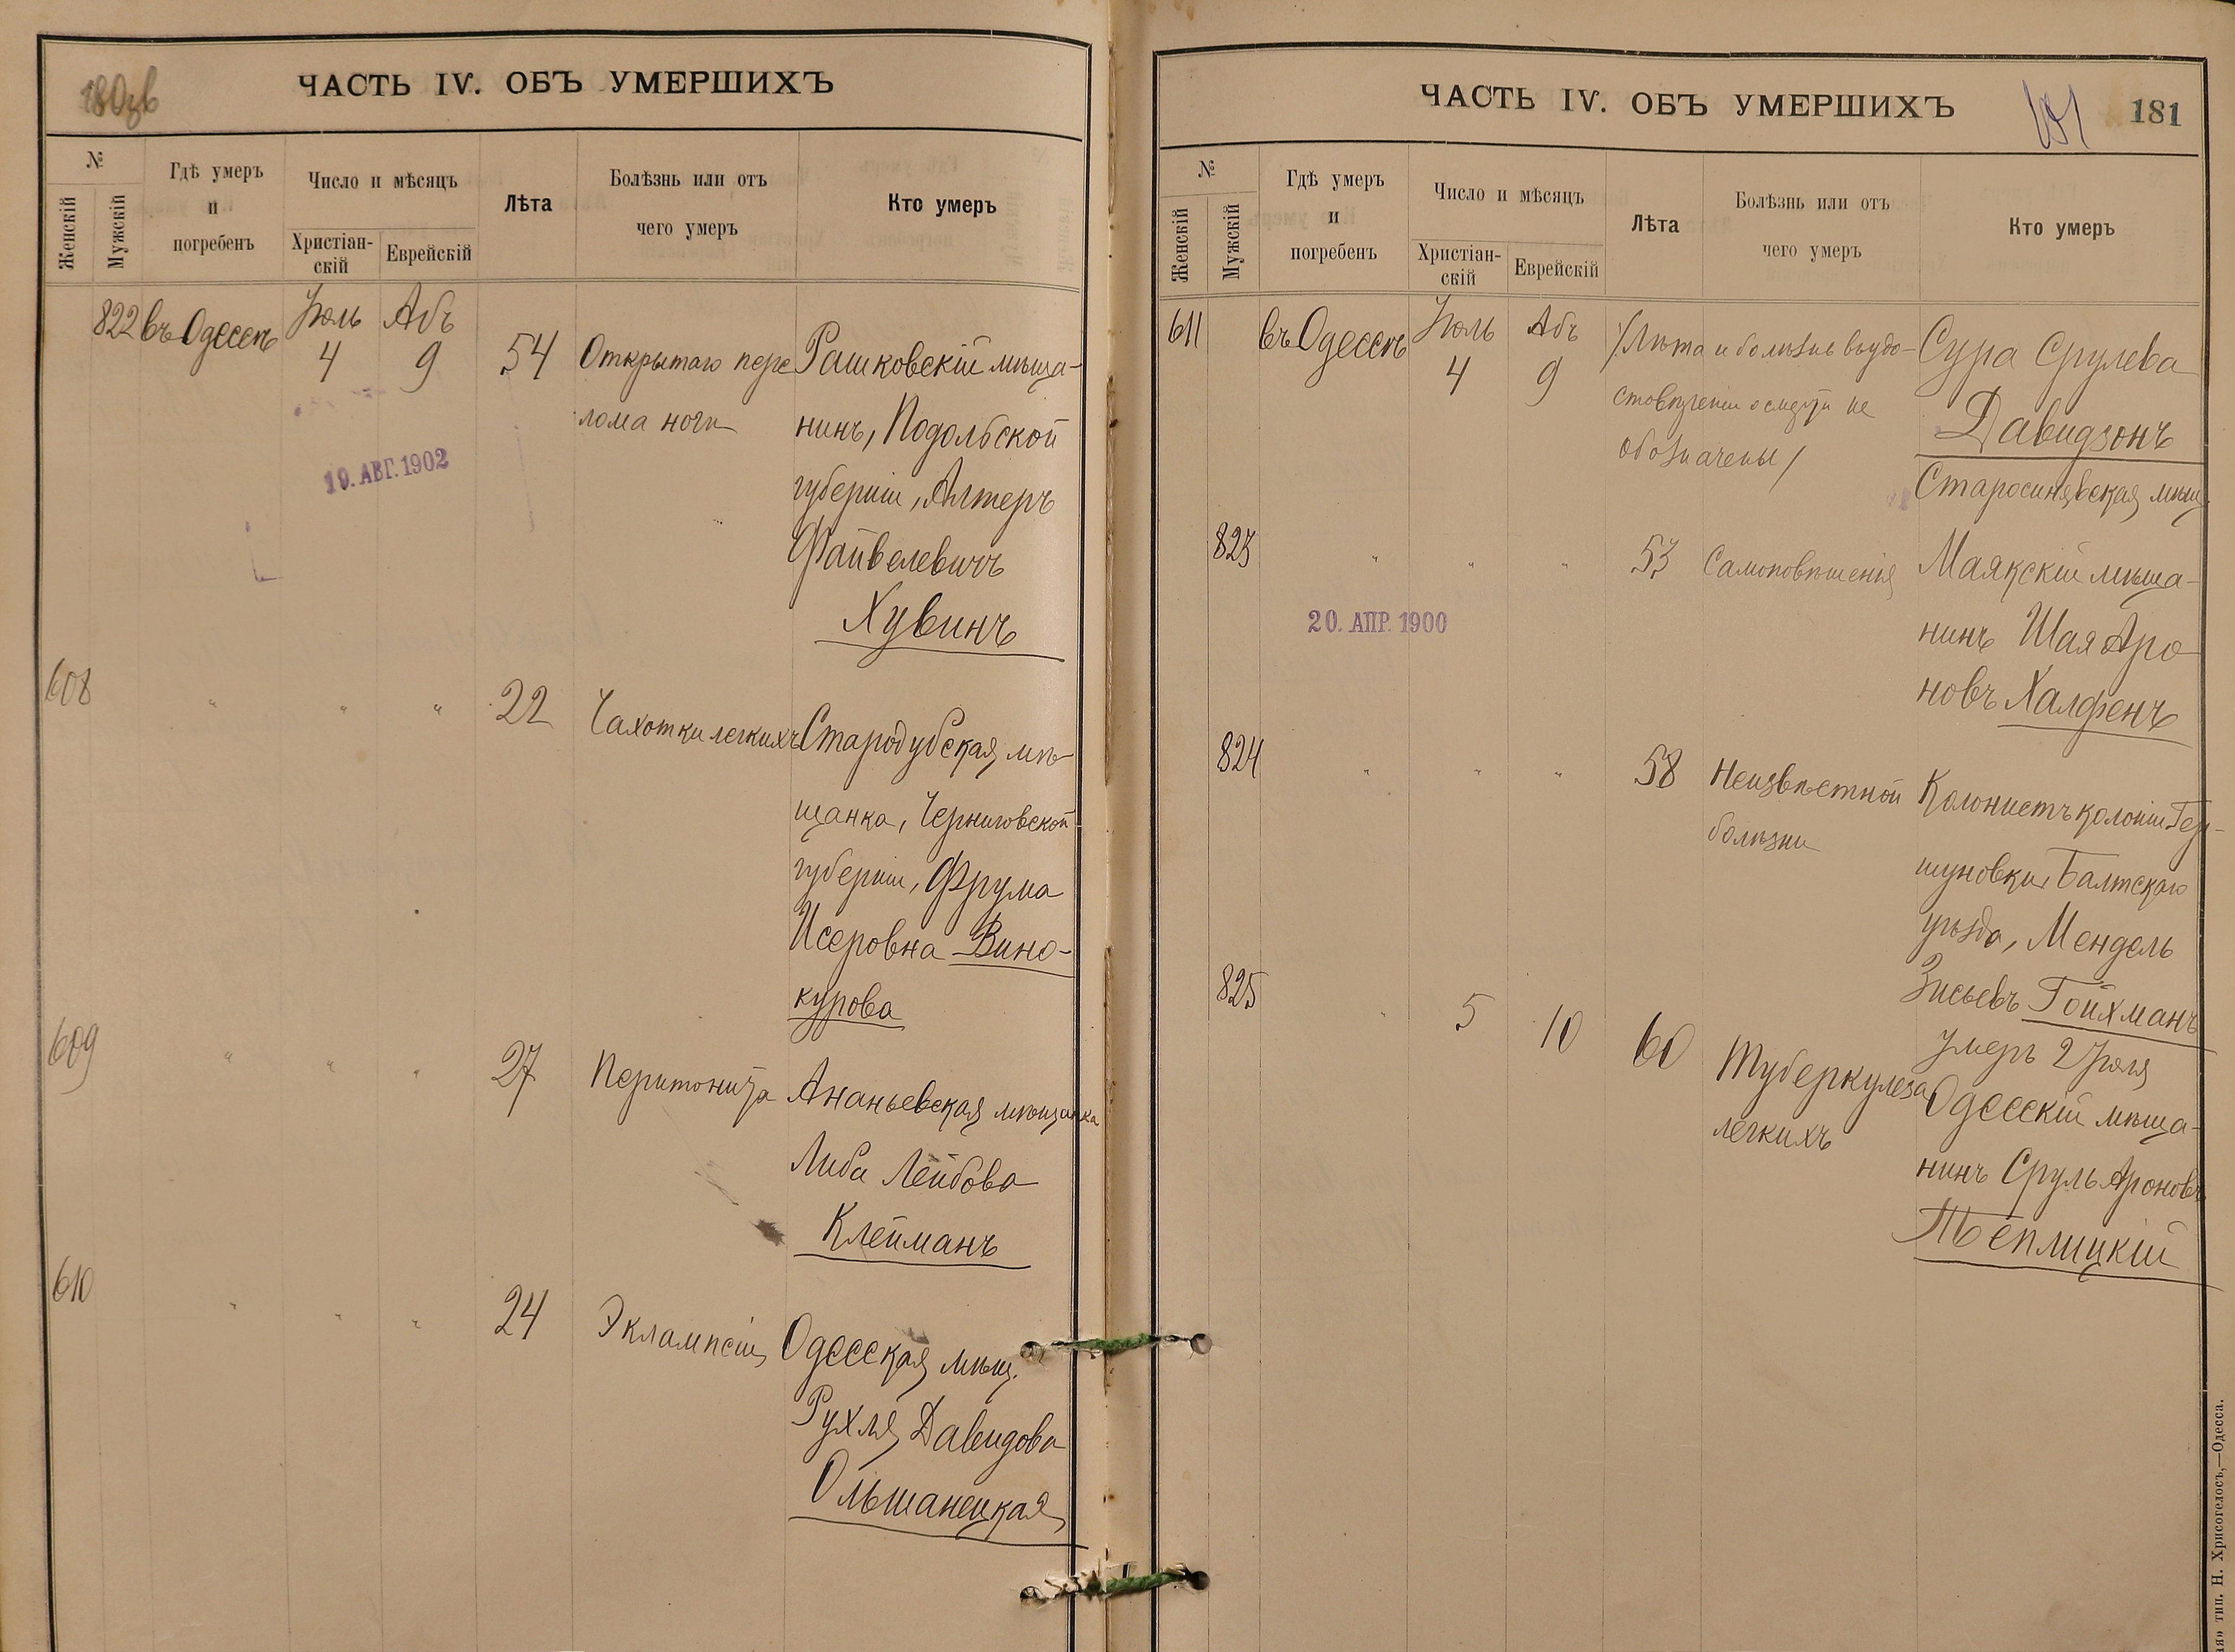 180 зв
ЧАСТЬ IV. ОБЪ УМЕРШИХЪ
№
Женскій
Мужскій
Гдѣ умеръ
и
погребенъ
Число и мѣсяцъ
Христіан-
скій
Еврейскій
Лѣта
Болѣзнь или отъ
чего умеръ
Кто умеръ
822 въ Одессѣ Іюль 4 Абъ 9 54 Открытаго пере Рашковскій мѣща-
лома ноги нинъ, Подольской
губерніи, Алтеръ
19. АВГ. 1902
Файвелевичъ
Хувинъ
608 " " " 22 Чахотки легкихъ Стародубская мѣ-
щанка, Черниговской
губерніи, Фрума
Исеровна Вино-
курова
609 " " " 27 Перитонита Ананьевская мѣщанка
Либа Лейбова
Клейманъ
610 " " " 24 Эклампсіи Одесская мѣщ.
Рухля Давидова
Ольшанецкая
ЧАСТЬ IV. ОБЪ УМЕРШИХЪ
181
181
№
Женскій
Мужскій
Гдѣ умеръ
и
погребенъ
Число и мѣсяцъ
Христіан-
скій
Еврейскій
Лѣта
Болѣзнь или отъ
чего умеръ
Кто умеръ
611 въ Одессѣ Іюль 4 Абъ 9 /Лѣта и болѣзнь въ удо- Сура Срулева
стовѣреніи о смерти не Давидзонъ
обозначены/ Старосинявская мѣщ.
823 " " " 53 Самоповѣшенія Маякскій мѣща-
20. АПР. 1900
нинъ Шая Аро
новъ Халфенъ
824 " " " 58 Неизвѣстной Колонистъ колоніи Гер-
болѣзни шуновки, Балтскаго
уѣзда, Мендель
Зисьевъ Гойхманъ
умеръ 2 Іюля
825 " 5 10 60 Туберкулеза Одесскій мѣща-
легкихъ нинъ Сруль Ароновъ
Теплицкій
тип. Н. Хрисогелосъ,—Одесса.